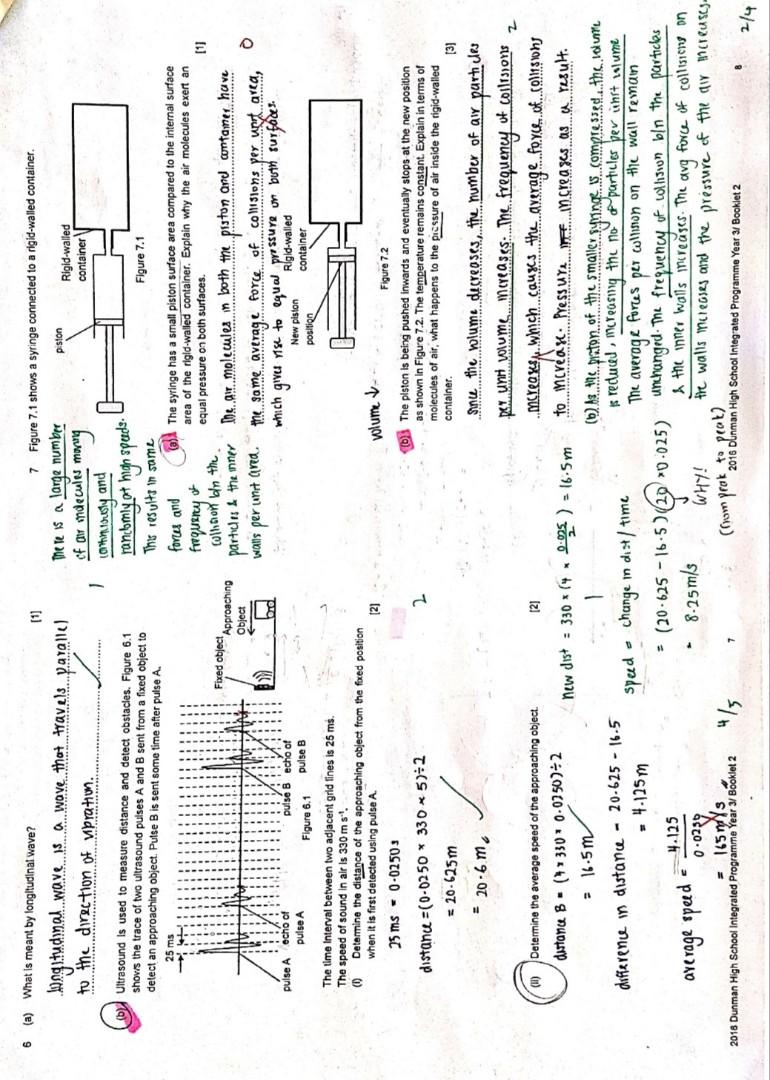 6 (a) What is meant by longitudinal wave? [1]
longitudinal wave is a wave that travels parallel
to the direction of vibration.
1
(b) Ultrasound is used to measure distance and detect obstacles. Figure 6.1
shows the trace of two ultrasound pulses A and B sent from a fixed object to
detect an approaching object. Pulse B is sent some time after pulse A.
25 ms
Fixed object
Approaching
Object
pulse A
echo of
pulse A
pulse B
echo of
pulse B
Figure 6.1
The time interval between two adjacent grid lines is 25 ms.
The speed of sound in air is 330 m s⁻¹.
(i) Determine the distance of the approaching object from the fixed position
when it is first detected using pulse A. [2]
25 ms = 0.0250s
distance = (0.0250 × 330 × 5) ÷ 2
= 20.625m
= 20.6 m
2
(ii) Determine the average speed of the approaching object. [2]
distance B = (4 × 330 × 0.0250) ÷ 2
= 16.5 m
difference in distance = 20.625 - 16.5
= 4.125 m
average speed = 4.125
0.0250
= 165 m/s
new dist = 330 × (4 × 0.025/2) = 16.5m
1
speed = change in dist / time
= (20.625 - 16.5) (20 × 0.025)
= 8.25 m/s
WHY!
(from peak to peak)
4/5
2018 Dunman High School Integrated Programme Year 3/ Booklet 2 7
7 Figure 7.1 shows a syringe connected to a rigid-walled container.
piston
Rigid-walled
container
Figure 7.1
(a) The syringe has a small piston surface area compared to the internal surface
area of the rigid-walled container. Explain why the air molecules exert an
equal pressure on both surfaces. [1]
The air molecules in both the piston and container have
the same average force of collisions per unit area,
which gives rise to equal pressure on both surfaces.
0
There is a large number
of air molecules moving
continuously and
randomly at high speeds.
This results in same
forces and
frequency of
collision b/n the
particles & the inner
walls per unit area.
New piston
position
Rigid-walled
container
Figure 7.2
volume ↓
(b) The piston is being pushed inwards and eventually stops at the new position
as shown in Figure 7.2. The temperature remains constant. Explain in terms of
molecules of air, what happens to the pressure of air inside the rigid-walled
container. [3]
Since the volume decreases, the number of air particles
per unit volume increases. The frequency of collisions
increases, which causes the average force of collisions
to increase. Pressure increases as a result.
2
(b) As the piston of the smaller syringe is compressed, the volume
is reduced, increasing the no. of particles per unit volume
The average forces per collision on the wall remain
unchanged. The frequency of collision b/n the particles
& the inner walls increases. The avg force of collisions on
the walls increases and the pressure of the air increases.
2018 Dunman High School Integrated Programme Year 3/ Booklet 2 8
2/4